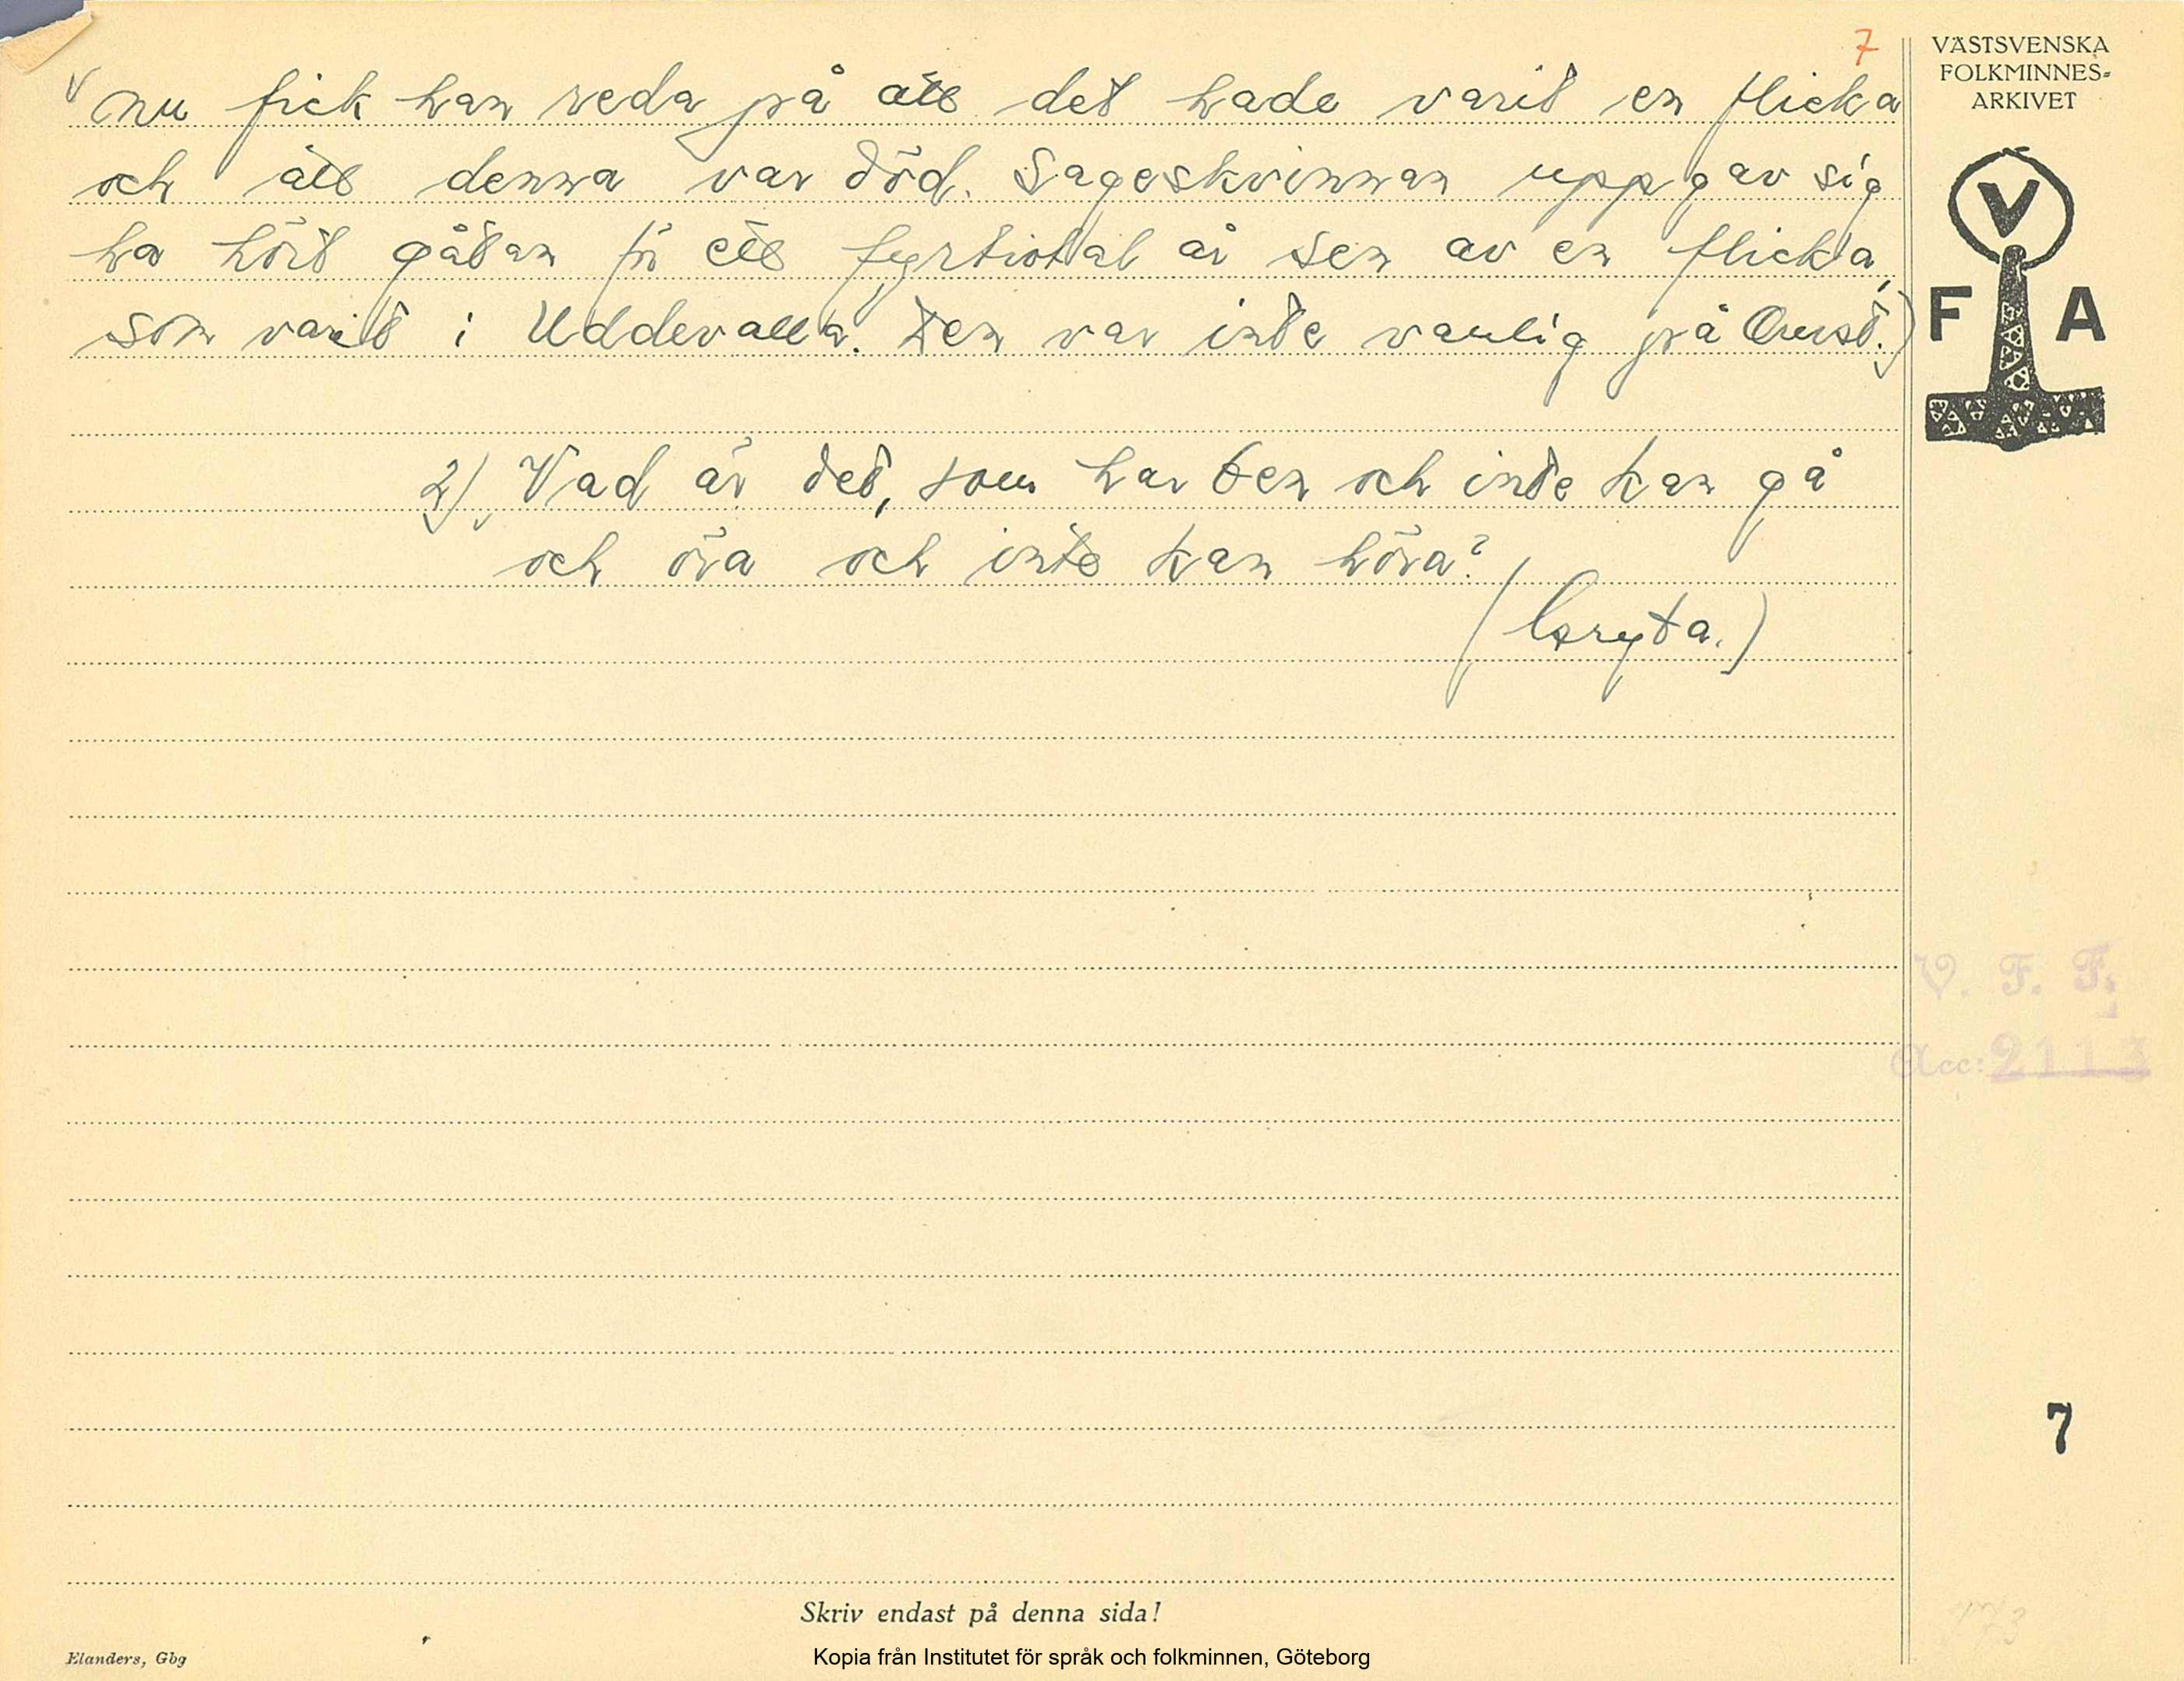 7
VÄSTSVENSKA
FOLKMINNES-
ARKIVET
nu fick han reda på att det hade varit en flicka
och att denna var död. Sageskvinnan uppgav sig
ha hört gåtan för ett fyrtiotal år sen av en flicka,
som varit i Uddevalla. Den var inte vanlig på Orust.)
V
F A
2) Vad är det, som har ben och inte kan gå
och öra och inte kan höra?
(Gryta.)
V. F. F.
Acc: 2113
7
Skriv endast på denna sida!
Elanders, Gbg
Kopia från Institutet för språk och folkminnen, Göteborg